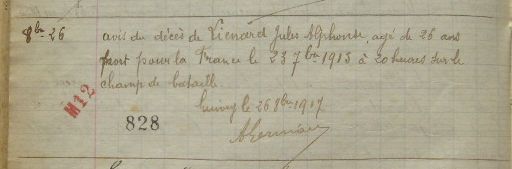 8bre 26 avis du décès de Lienard Jules Alphonse, agé de 26 ans
mort pour la France le 23 7bre 1915 à 20 heures sur le
champ de bataille
le 26 8bre 1917
M12
828